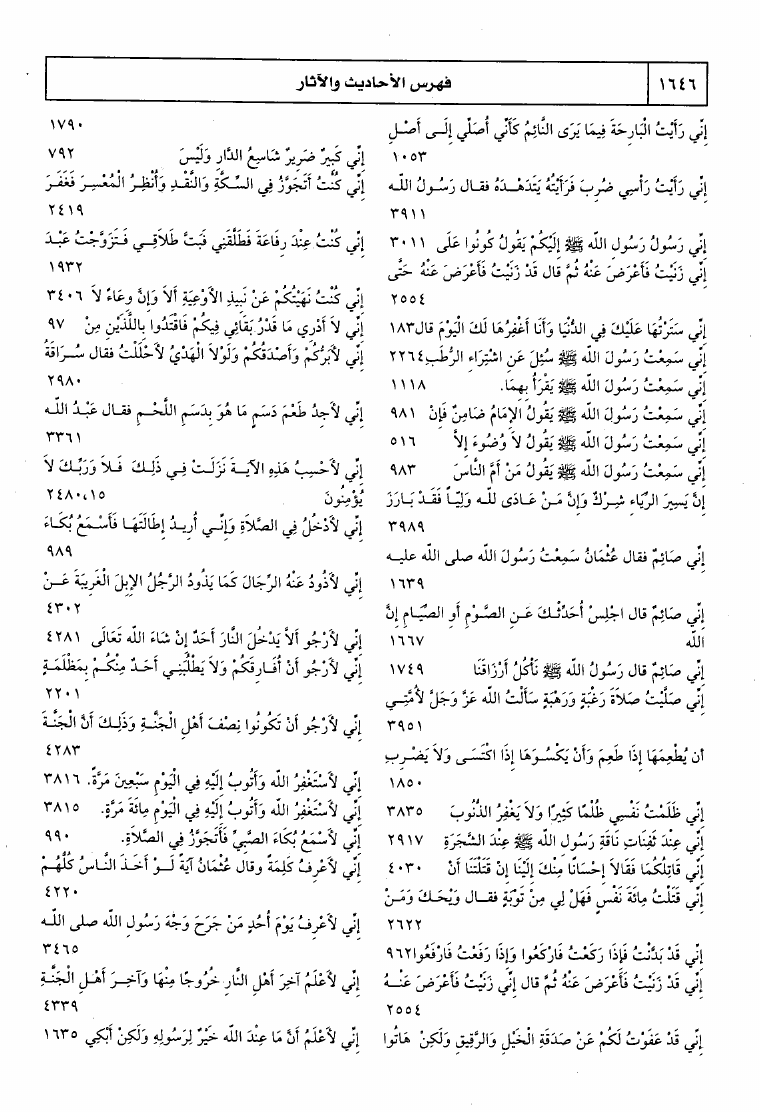 ١٦٤٦
فهرس الأحاديث والآثار
إِنِّي رَأَيْتُ الْبَارِحَةَ فِيمَا يَرَى النَّائِمُ كَأَنِّي أُصَلِّي إِلَى أَصْلِ
١٠٥٣
إِنِّي رَأَيْتُ رَأْسِي ضُرِبَ فَرَأَيْتُهُ يَتَدَهْدَهُ فقال رَسُولُ اللَّه
٣٩١١
إِنِّي رَسُولُ رَسُولِ اللَّه ﷺ إِلَيْكُمْ يَقُولُ كُونُوا عَلَى ٣٠١١
إِنِّي زَنَيْتُ فَأَعْرَضَ عَنْهُ ثُمَّ قال قَدْ زَنَيْتُ فَأَعْرَضَ عَنْهُ حَتَّى
٢٥٥٤
إِنِّي سَتَرْتُهَا عَلَيْكَ فِي الدُّنْيَا وَأَنَا أَغْفِرُهَا لَكَ الْيَوْمَ قال١٨٣
إِنِّي سَمِعْتُ رَسُولَ اللَّه ﷺ سُئِلَ عَنِ اشْتِرَاءِ الرُّطَبِ٢٢٦٤
إِنِّي سَمِعْتُ رَسُولَ اللَّه ﷺ يَقْرَأُ بِهِمَا. ١١١٨
إِنِّي سَمِعْتُ رَسُولَ اللَّه ﷺ يَقُولُ الإِمَامُ ضَامِنٌ فَإِنْ ٩٨١
إِنِّي سَمِعْتُ رَسُولَ اللَّه ﷺ يَقُولُ لاَ وُضُوءَ إِلاَّ ٥١٦
إِنِّي سَمِعْتُ رَسُولَ اللَّه ﷺ يَقُولُ مَنْ أَمَّ النَّاسَ ٩٨٣
إِنَّ يَسِيرَ الرِّيَاءِ شِرْكٌ وَإِنَّ مَنْ عَادَى للَّه وَلِيّاً فَقَدْ بَارَزَ
٣٩٨٩
إِنِّي صَائِمٌ فقال عُثْمَانُ سَمِعْتُ رَسُولَ اللَّه صلى اللَّه عليه
١٦٣٩
إِنِّي صَائِمٌ قال اجْلِسْ أُحَدِّثْكَ عَنِ الصَّوْمِ أَوِ الصِّيَامِ إِنَّ
اللَّه ١٦٦٧
إِنِّي صَائِمٌ قال رَسُولُ اللَّه ﷺ نَأْكُلُ أَرْزَاقَنَا ١٧٤٩
إِنِّي صَلَّيْتُ صَلاَةَ رَغْبَةٍ وَرَهْبَةٍ سَأَلْتُ اللَّه عَزَّ وَجَلَّ لأُمَّتِي
٣٩٥١
أن يُطْعِمَهَا إِذَا طَعِمَ وَأَنْ يَكْسُوَهَا إِذَا اكْتَسَى وَلاَ يَضْرِبِ
١٨٥٠
إِنِّي ظَلَمْتُ نَفْسِي ظُلْمًا كَثِيرًا وَلاَ يَغْفِرُ الذُّنُوبَ ٣٨٣٥
إِنِّي عِنْدَ ثَفِنَاتِ نَاقَةِ رَسُولِ اللَّه ﷺ عِنْدَ الشَّجَرَةِ ٢٩١٧
إِنِّي قَاتِلُكُمَا فَقَالاَ إِحْسَانًا مِنْكَ إِلَيْنَا إِنْ قَتَلْتَنَا أَنْ ٤٠٣٠
إِنِّي قَتَلْتُ مِائَةَ نَفْسٍ فَهَلْ لِي مِنْ تَوْبَةٍ فقال وَيْحَكَ وَمَنْ
٢٦٢٢
إِنِّي قَدْ بَدَّنْتُ فَإِذَا رَكَعْتُ فَارْكَعُوا وَإِذَا رَفَعْتُ فَارْفَعُوا٩٦٢
إِنِّي قَدْ زَنَيْتُ فَأَعْرَضَ عَنْهُ ثُمَّ قال إِنِّي زَنَيْتُ فَأَعْرَضَ عَنْهُ
٢٥٥٤
إِنِّي قَدْ عَفَوْتُ لَكُمْ عَنْ صَدَقَةِ الْخَيْلِ وَالرَّقِيقِ وَلَكِنْ هَاتُوا
١٧٩٠
إِنِّي كَبِيرٌ ضَرِيرٌ شَاسِعُ الدَّارِ وَلَيْسَ ٧٩٢
إِنِّي كُنْتُ أَتَجَوَّزُ فِي السِّكَّةِ وَالنَّقْدِ وَأُنْظِرُ الْمُعْسِرَ فَغَفَرَ
٢٤١٩
إِنِّي كُنْتُ عِنْدَ رِفَاعَةَ فَطَلَّقَنِي فَبَتَّ طَلاَقِي فَتَزَوَّجْتُ عَبْدَ
١٩٣٢
إِنِّي كُنْتُ نَهَيْتُكُمْ عَنْ نَبِيذِ الأَوْعِيَةِ أَلاَ وَإِنَّ وِعَاءً لاَ ٣٤٠٦
إِنِّي لاَ أَدْرِي مَا قَدْرُ بَقَائِي فِيكُمْ فَاقْتَدُوا بِاللَّذَيْنِ مِنْ ٩٧
إِنِّي لأَبَرُّكُمْ وَأَصْدَقُكُمْ وَلَوْلاَ الْهَدْيُ لأَحْلَلْتُ فقال سُرَاقَةُ
٢٩٨٠
إِنِّي لأَجِدُ طَعْمَ دَسَمٍ مَا هُوَ بِدَسَمِ اللَّحْمِ فقال عَبْدُ اللَّه
٣٣٦١
إِنِّي لأَحْسِبُ هَذِهِ الآيَةَ نَزَلَتْ فِي ذَلِكَ فَلاَ وَرَبِّكَ لاَ
يُؤْمِنُونَ ٢٤٨٠،١٥
إِنِّي لأَدْخُلُ فِي الصَّلاَةِ وَإِنِّي أُرِيدُ إِطَالَتَهَا فَأَسْمَعُ بُكَاءَ
٩٨٩
إِنِّي لأَذُودُ عَنْهُ الرِّجَالَ كَمَا يَذُودُ الرَّجُلُ الإِبِلَ الْغَرِيبَةَ عَنْ
٤٣٠٢
إِنِّي لأَرْجُو أَلاَّ يَدْخُلَ النَّارَ أَحَدٌ إِنْ شَاءَ اللَّه تَعَالَى ٤٢٨١
إِنِّي لأَرْجُو أَنْ أُفَارِقَكُمْ وَلاَ يَطْلُبَنِي أَحَدٌ مِنْكُمْ بِمَظْلَمَةٍ
٢٢٠١
إِنِّي لأَرْجُو أَنْ تَكُونُوا نِصْفَ أَهْلِ الْجَنَّةِ وَذَلِكَ أَنَّ الْجَنَّةَ
٤٢٨٣
إِنِّي لأَسْتَغْفِرُ اللَّه وَأَتُوبُ إِلَيْهِ فِي الْيَوْمِ سَبْعِينَ مَرَّةً. ٣٨١٦
إِنِّي لأَسْتَغْفِرُ اللَّه وَأَتُوبُ إِلَيْهِ فِي الْيَوْمِ مِائَةَ مَرَّةٍ. ٣٨١٥
إِنِّي لأَسْمَعُ بُكَاءَ الصَّبِيِّ فَأَتَجَوَّزُ فِي الصَّلاَةِ. ٩٩٠
إِنِّي لأَعْرِفُ كَلِمَةً وقال عُثْمَانُ آيَةً لَوْ أَخَذَ النَّاسُ كُلُّهُمْ
٤٢٢٠
إِنِّي لأَعْرِفُ يَوْمَ أُحُدٍ مَنْ جَرَحَ وَجْهَ رَسُولِ اللَّه صلى اللَّه
٣٤٦٥
إِنِّي لأَعْلَمُ آخِرَ أَهْلِ النَّارِ خُرُوجًا مِنْهَا وَآخِرَ أَهْلِ الْجَنَّةِ
٤٣٣٩
إِنِّي لأَعْلَمُ أَنَّ مَا عِنْدَ اللَّه خَيْرٌ لِرَسُولِهِ وَلَكِنْ أَبْكِي ١٦٣٥